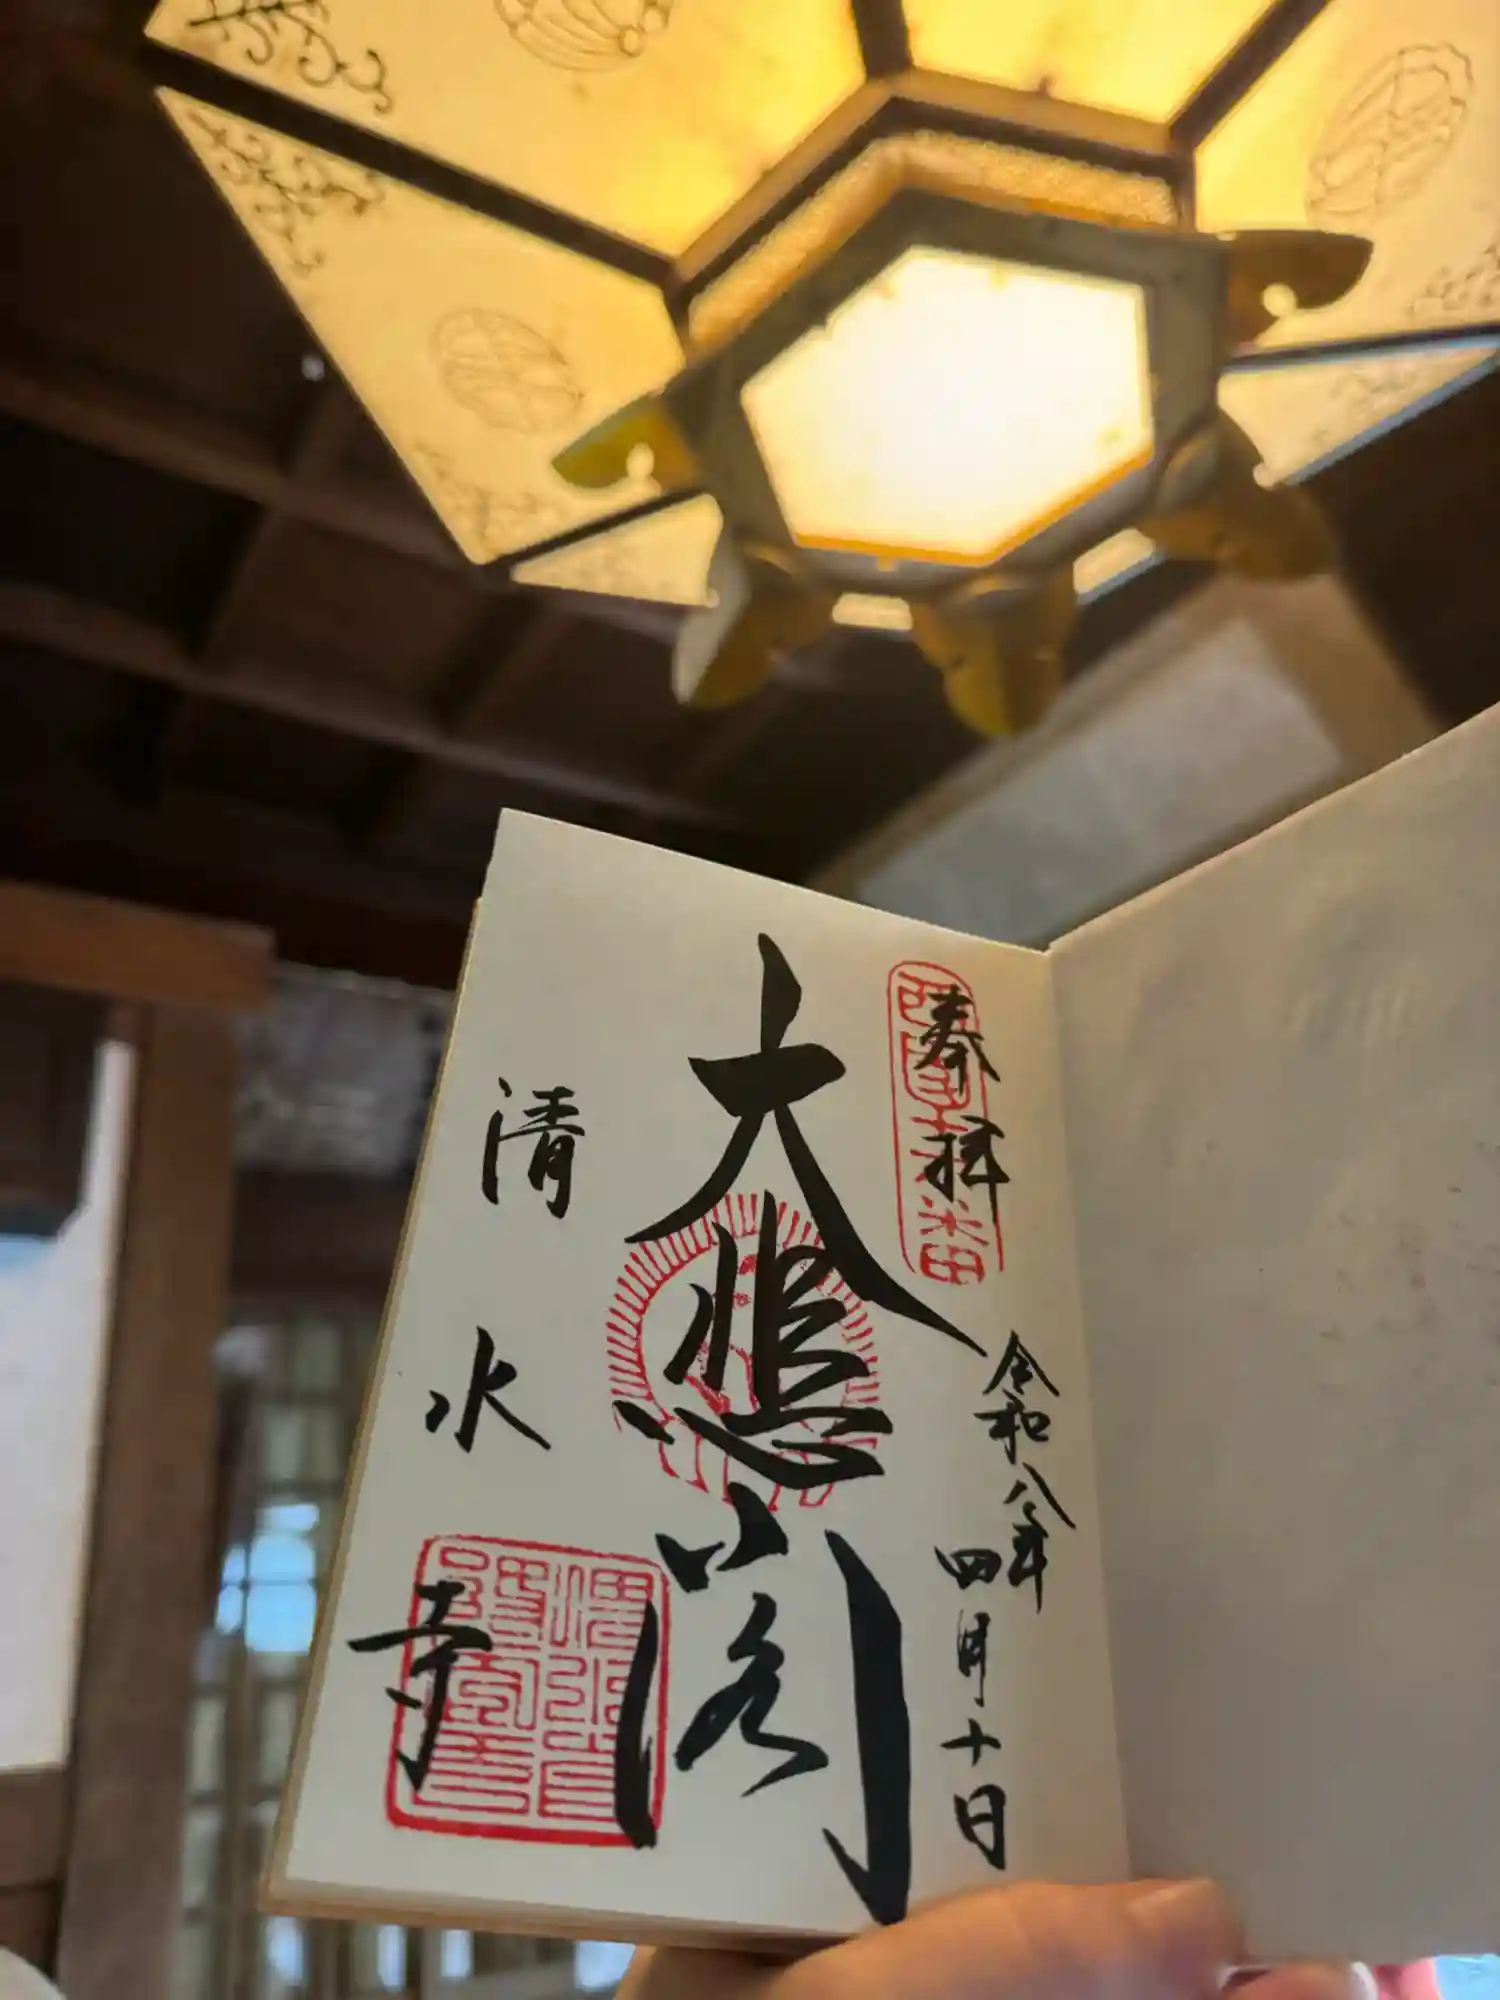 奉拝
令和八年
四月十日
大悲閣
清水寺